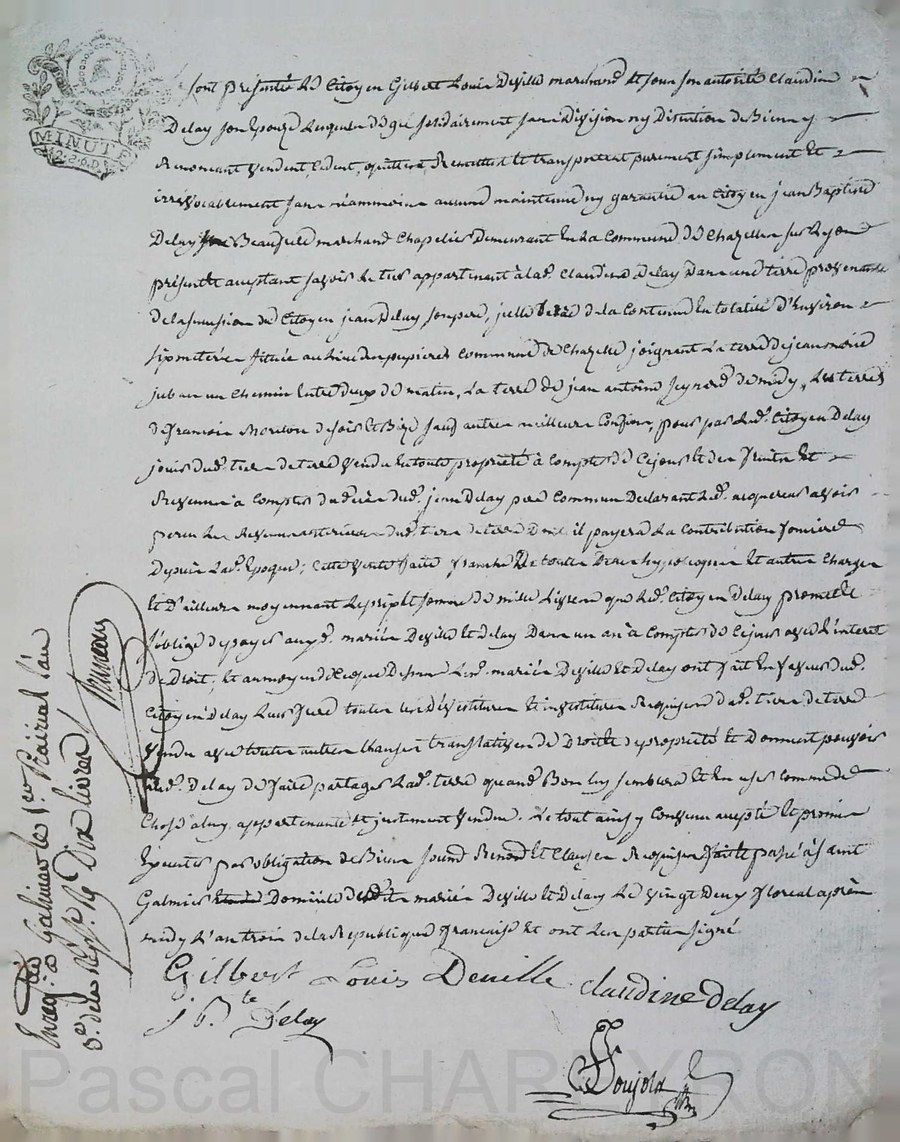 MINUTE
Sont présents le Citoyen Gilbert Louis Deville marchand et sous son autorité Claudine
Delay son Epouze lesquels de gré solidairement sans division ny Discution de Biens y
Renoncant vendent, Cedent, quittent, Remettent et transportent purement simplement et
irrévocablement sans néammoins aucune maintenue ny garantie au Citoyen jean Baptiste
Delay Beaufrere marchand Chapelier Demeurant en la Commune de Chazelles sur Lyon
présent et aceptant savoir le tiers appartenant à lad. Claudine Delay dans une terre provenante
de la sucession du Citoyen jean Delay son pere, icelle terre de la Contenue en totalité d'Environ
six meterées située au lieu des Commune de Chazelle joignant la terre de jean marie
un chemin entre deux de matin, la terre de jean antoine de midy, les terres
de francois de soir et Bize sauf autres meilleurs Confins, pour par led. Citoyen Delay
jouir dud. tiers de terre vendu en toute propriété à Compter de Cejour et des fruits et
Revenus à Compter du décès dud. jean Delay pere Commun Declarant led. acquereur avoir
percu les Revenus anterieurs dud. tiers de terre Dont il payera la Contribution fonciere
Depuis lad. Epoque; Cette vente faite franche De toutes Dettes hypoteques et autres Charges
et D'ailleurs moyennant le prix et somme de mille livres que led. Citoyen Delay promet et
s'oblige de payer auxd. mariés Deville et Delay Dans un an à Compter de Cejour avec l'interet
de Droit, et au moyen de ce que Dessus lesd. mariés Deville et Delay ont fait en faveur dud.
Citoyen Delay leur frere toutes les dévestitures et investitures Requises dud. tiers de terre
vendu avec toutes autres Clauses translatives de Droit et de propriété et Donnent pouvoir
aud. Delay de faire partager lad. terre quand Bon luy semblera et en user comme de
Chose à luy appartenante et justement vendue. Le tout ainsy Convenu accepté et promis
Executer par obligation de Biens soumd Renond et Clauses Requises fait et passé à Saint
Galmier Domicile desdits mariés Deville et Delay le vingt deux floreal après
midy l'an trois de la Republique francaise et ont les parties signé
Gilbert Louis Deville claudine delay
J Bte Delay
Enregtré à Galmier le 1er Prairial l'an
3e de la Rép. Dix livres
Pascal CHAPEYRON